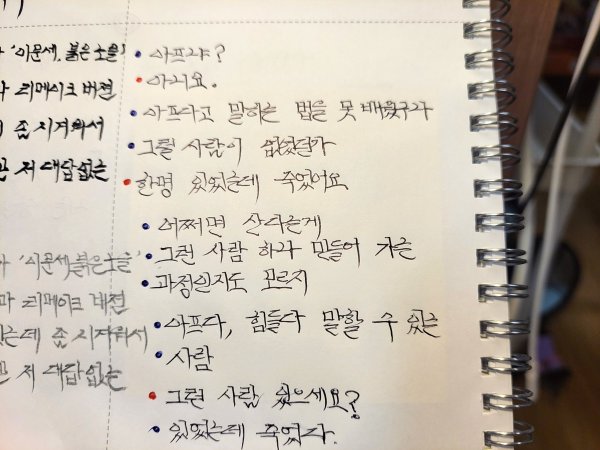 '이문세, 붉은 노을'
리메이크 버전
좀 시켜줘서
저 대답없는
아프냐?
아니요.
아프다고 말하는 법을 못 배웠구나
그럴 사람이 없었던가
한명 있었는데 죽었어요
어쩌면 산다는게
그런 사람 하나 만들어 가는
과정인지도 모르지
아프다, 힘들다 말할 수 있는
사람
그런 사람 있으세요?
있었는데 죽었다.
'이문세, 붉은 노을'
리메이크 버전
는데 좀 시켜줘서
저 대답없는